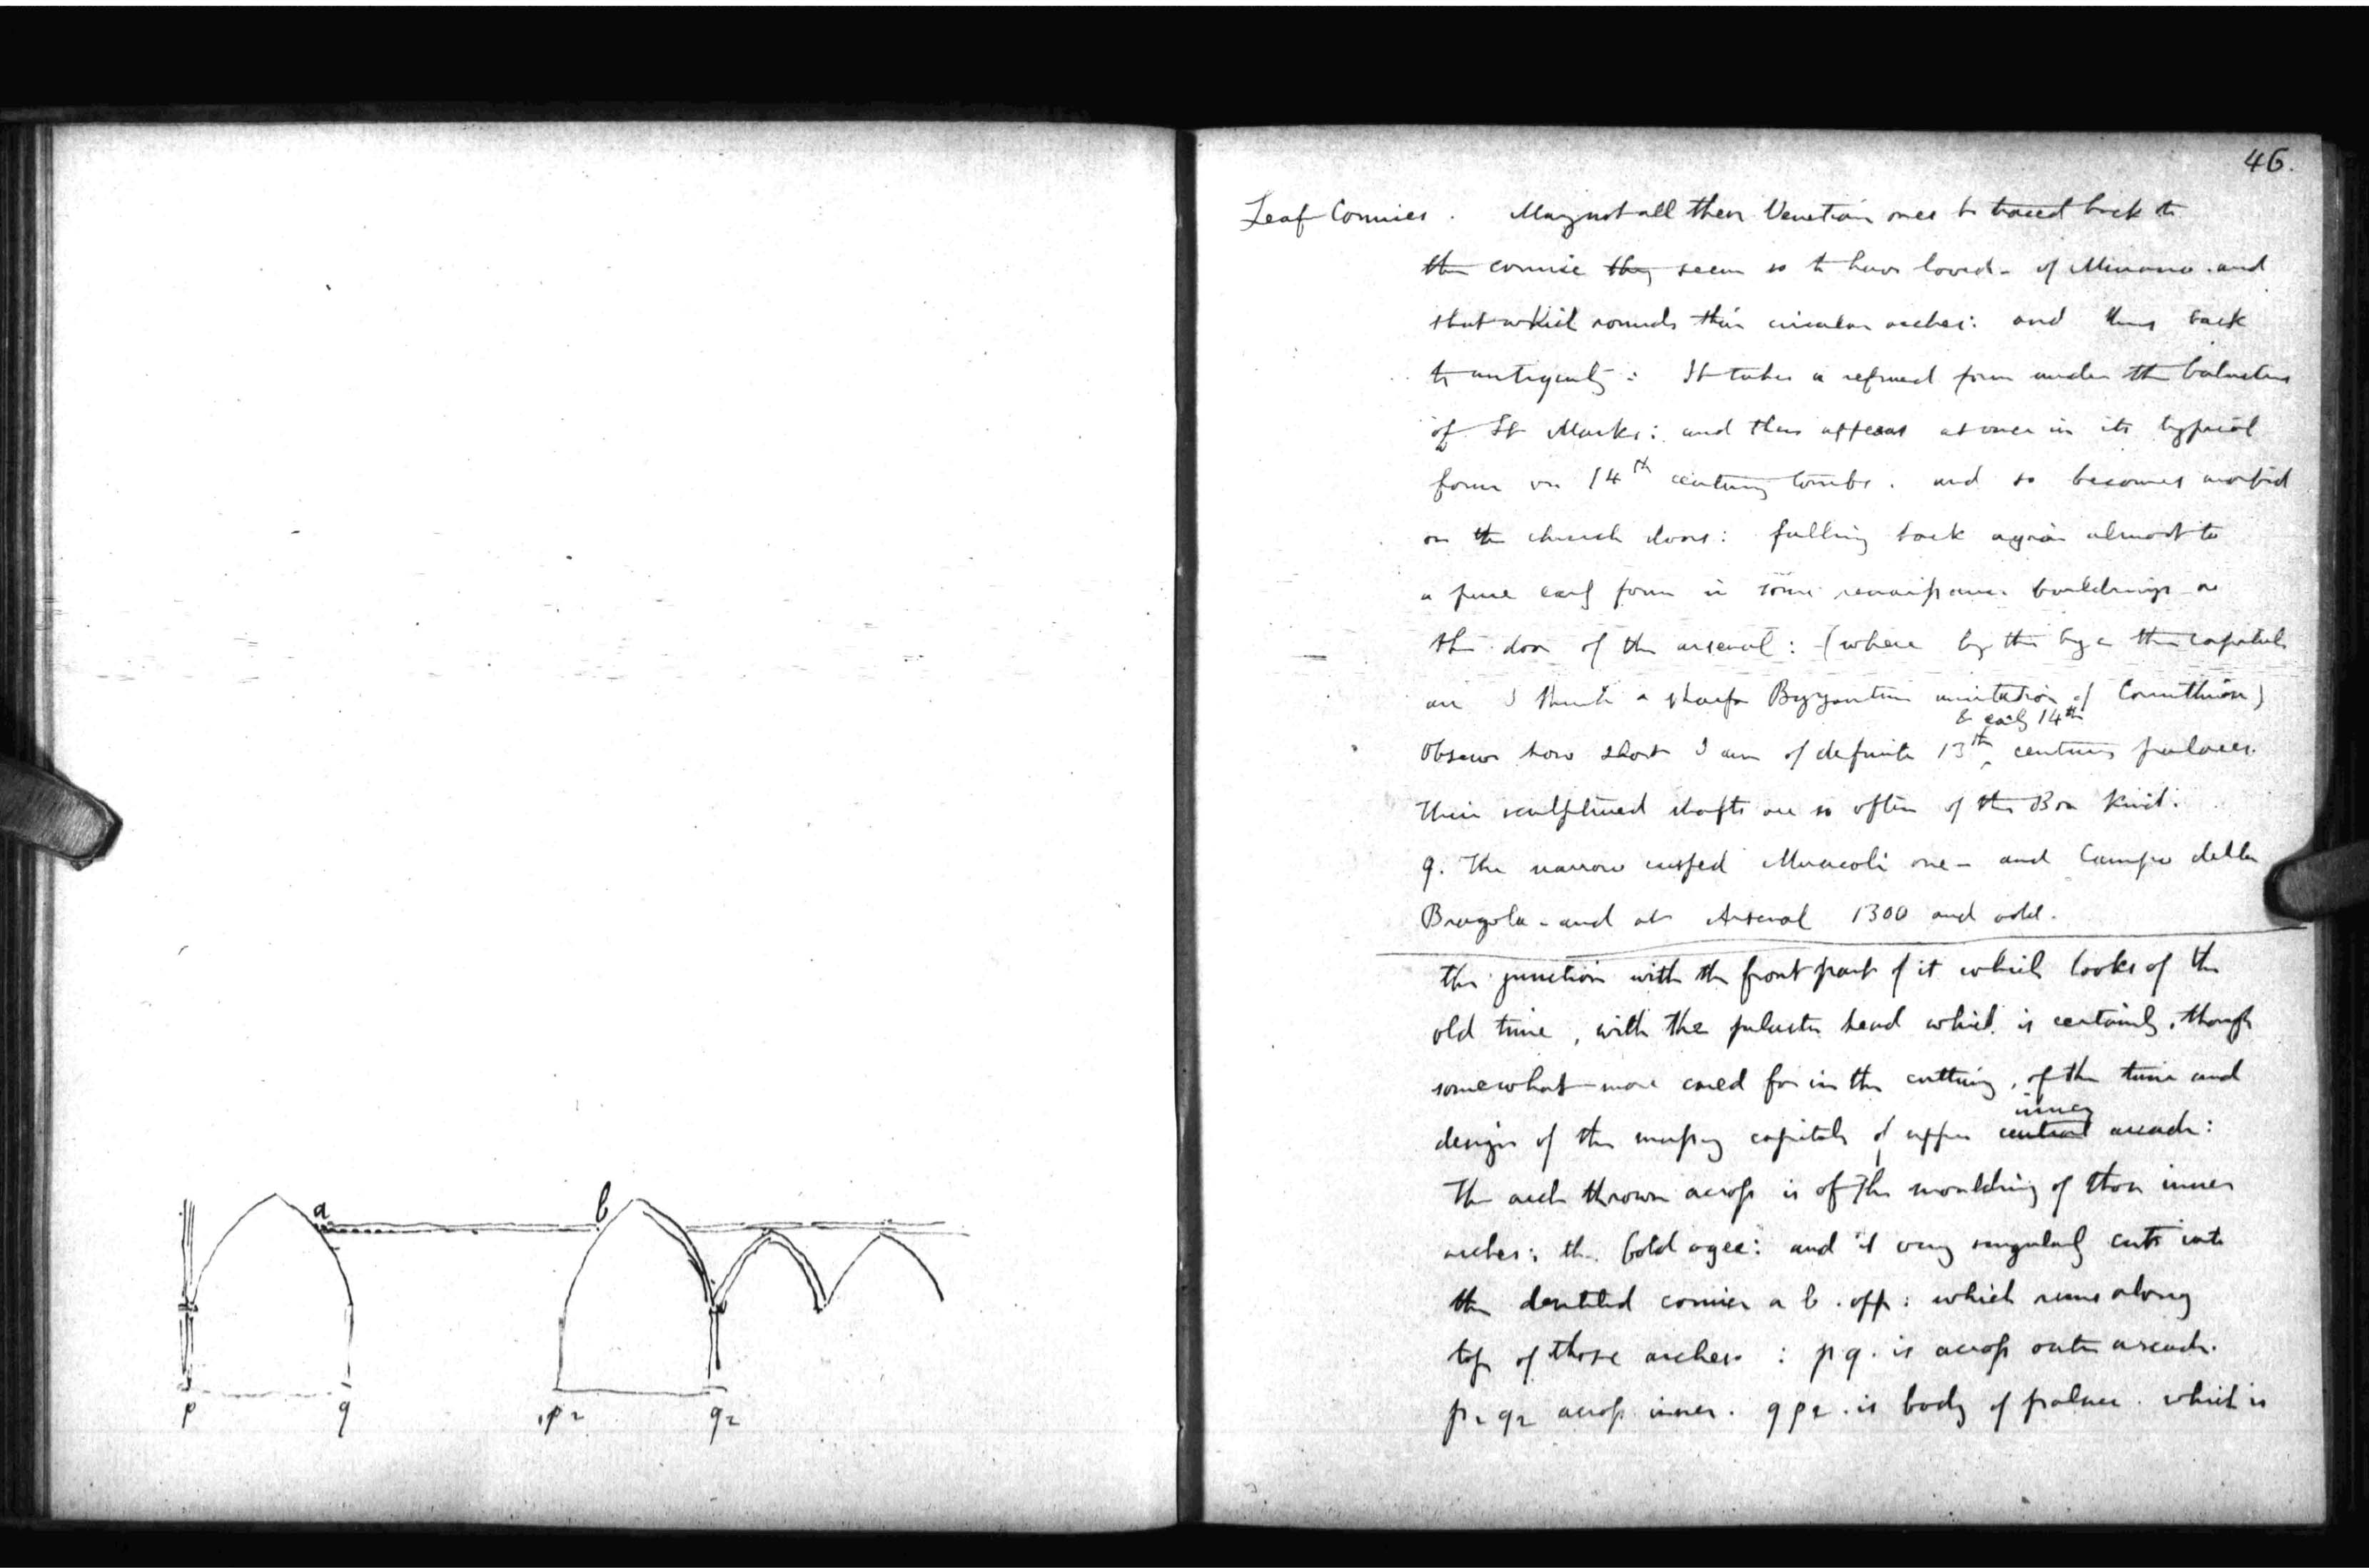 a
b
p
q
p2
q2
46.
Leaf Cornices. May not all these Venetian ones be traced back to
the cornice they seem so to have loved - of Murano. and
that which rounds their circular arches: and thus back
to antiquity: It takes a refined form under the balusters
of St Marks: and then appears at once in its typical
form on 14th century tombs. and so becomes morbid
on the church doors: falling back again almost to
a pure early form in some renaissance buildings as
the door of the arsenal: (where by the bye the capitals
are I think a sharp Byzantine imitation of Corinthian)
& early 14th
Observe how short I am of definite 13th century palaces.
Their sculptured shafts are so often of the kind.
q. The narrow cusped Miracoli one - and Campo della
Bragola - and at Arsenal 1300 and odd.
the junction with the front part of it which looks of the
old time, with the pilaster head which is certainly, though
somewhat more cared for in the cutting, of the time and
inner
design of the massy capitals of upper central arcade:
The arch thrown across is of the moulding of those inner
arches: the bold ogee: and it very singularly cuts into
the dentiled cornice a b. opp: which runs along
top of those arches: p q. is across outer arcade.
p2 q2 across inner. q p2. is body of palace. which is